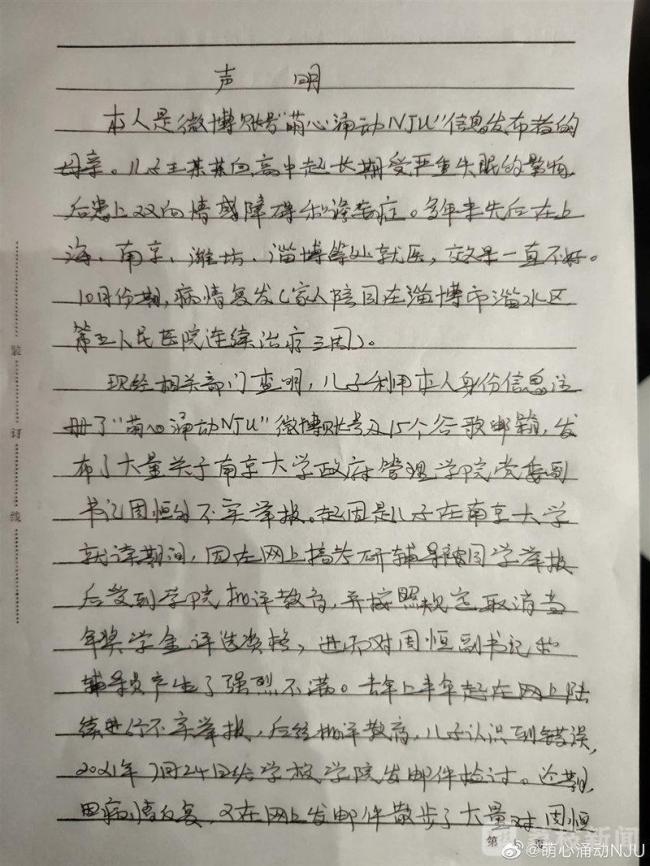 声 明
本人是微博账号“萌心涌动NJU”信息发布者的
母亲。儿子王某某自高中起长期受严重失眠的影响,
后患上双向情感障碍和谵妄症。多年来先后在上
海、南京、潍坊、淄博等处就医,效果一直不好。
10月份期,病情复发(家人陪同在淄博市淄水区
第五人民医院连续治疗三周)。
现经相关部门查明,儿子利用本人身份信息注
册了“萌心涌动NJU”微博账号及15个谷歌邮箱,发
布了大量关于南京大学政府管理学院党委副
书记周恒的不实举报。起因是儿子在南京大学
就读期间,因在网上搞考研辅导被同学举报
后受到学院批评教育,并按照规定取消当
年奖学金评选资格,进而对周恒副书记的
辅导员产生了强烈不满。去年上半年起在网上陆
续进行不实举报,后经批评教育,儿子认识到错误,
2021年7月24日给学校学院发邮件检讨。近期,
因病情反复,又在网上发邮件散步了大量对周恒
装
订
线
第 页
@萌心涌动NJU